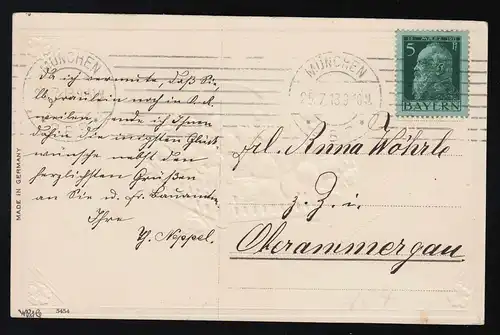 MÜNCHEN
MÜNCHEN
12. MÄRZ 1911
5 5
BAYERN
Da ich vermute, daß Sie,
Fräulein noch in O.A.
weilen, sende ich Ihnen
dahin die innigsten Glück-
wünsche nebst den
herzlichsten Grüßen
an Sie u. Fr. Bauamtm.
Ihre
Y. Neppel.
Frl. Anna Wöhrle
z. Z. i.
Oberammergau
MADE IN GERMANY
5454